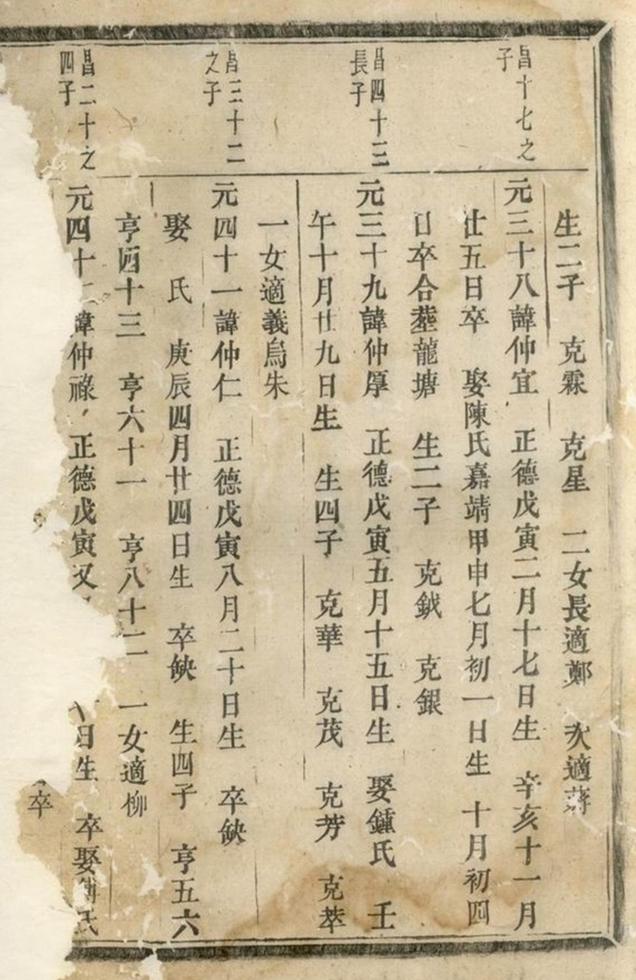 生二子　克霖　克星　二女長適鄭　次適蔣
昌十七之
子
元三十八諱仲宜　正德戊寅二月十七日生　辛亥十一月
廿五日卒　娶陳氏嘉靖甲申七月初一日生　十月初四
日卒合塟龍塘　生二子　克鉞　克銀
昌四十三
長子
元三十九諱仲厚　正德戊寅五月十五日生　娶鍾氏　壬
午十月廿九日生　生四子　克華　克茂　克芳　克萃
一女適義烏朱
昌三十二
之子
元四十一諱仲仁　正德戊寅八月二十日生　卒缺
娶　氏　庚辰四月廿四日生　卒缺　生四子　亨五六
亨四十三　亨六十一　亨八十二　一女適柳
昌二十之
四子
元四十二諱仲祿　正德戊寅又　日生　卒娶傅氏
卒